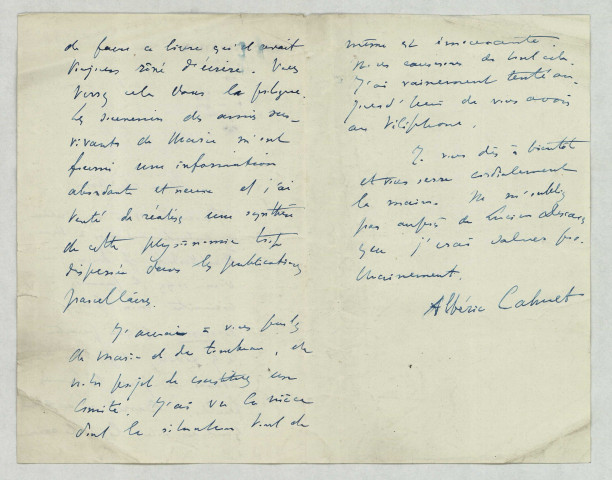 de faire, ce livre qu'il avait
toujours rêvé d'écrire. Vous
verrez cela dans la prologue.
Les souvenirs des amis sur-
vivants de Marie m'ont
fourni une information
abondante et neuve et j'ai
tenté de réaliser une synthèse
de cette physionomie trop
dispersée dans les publications
parcellaires.
J'aurai à vous parler
de Marie et du tombeau, de
notre projet de constituer un
Comité. J'ai vu la nièce
dont la situation tant de
même est innocente.
Nous causerons de tout cela.
J'ai vainement tenté au-
jourd'hui de vous avoir
au téléphone.
Je vous dis à bientôt
et vous serre cordialement
la main. Ne m'oubliez
pas auprès de Lucien
que j'irai saluer pro-
chainement.
Albéric Cahuet